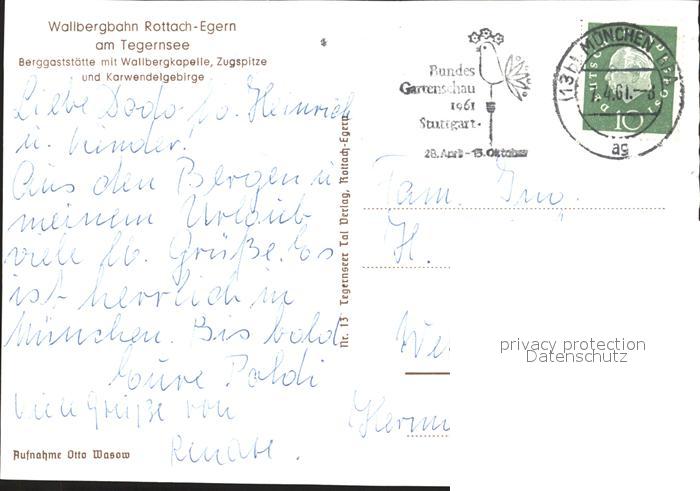 Wallbergbahn Rottach-Egern
am Tegernsee
Berggaststätte mit Wallbergkapelle, Zugspitze
und Karwendelgebirge
Liebe Dodo, lb. Heinrich
u. Kinder!
Aus den Bergen u.
meinem Urlaub
viele lb. Grüße. Es
ist herrlich in
München. Bis bald
Eure Poldi
Viele Grüße von
Renate.
Aufnahme Otto Wasow
Nr. 13 Tegernseer Tal Verlag, Rottach-Egern
Bundes
Gartenschau
1961
Stuttgart
28. April - 15. Oktober
(13b) MÜNCHEN
.4.61.-8
ag
DEUTSCHE BUNDESPOST
10
Fam. Ing.
H.
We
Herm
privacy protection
Datenschutz